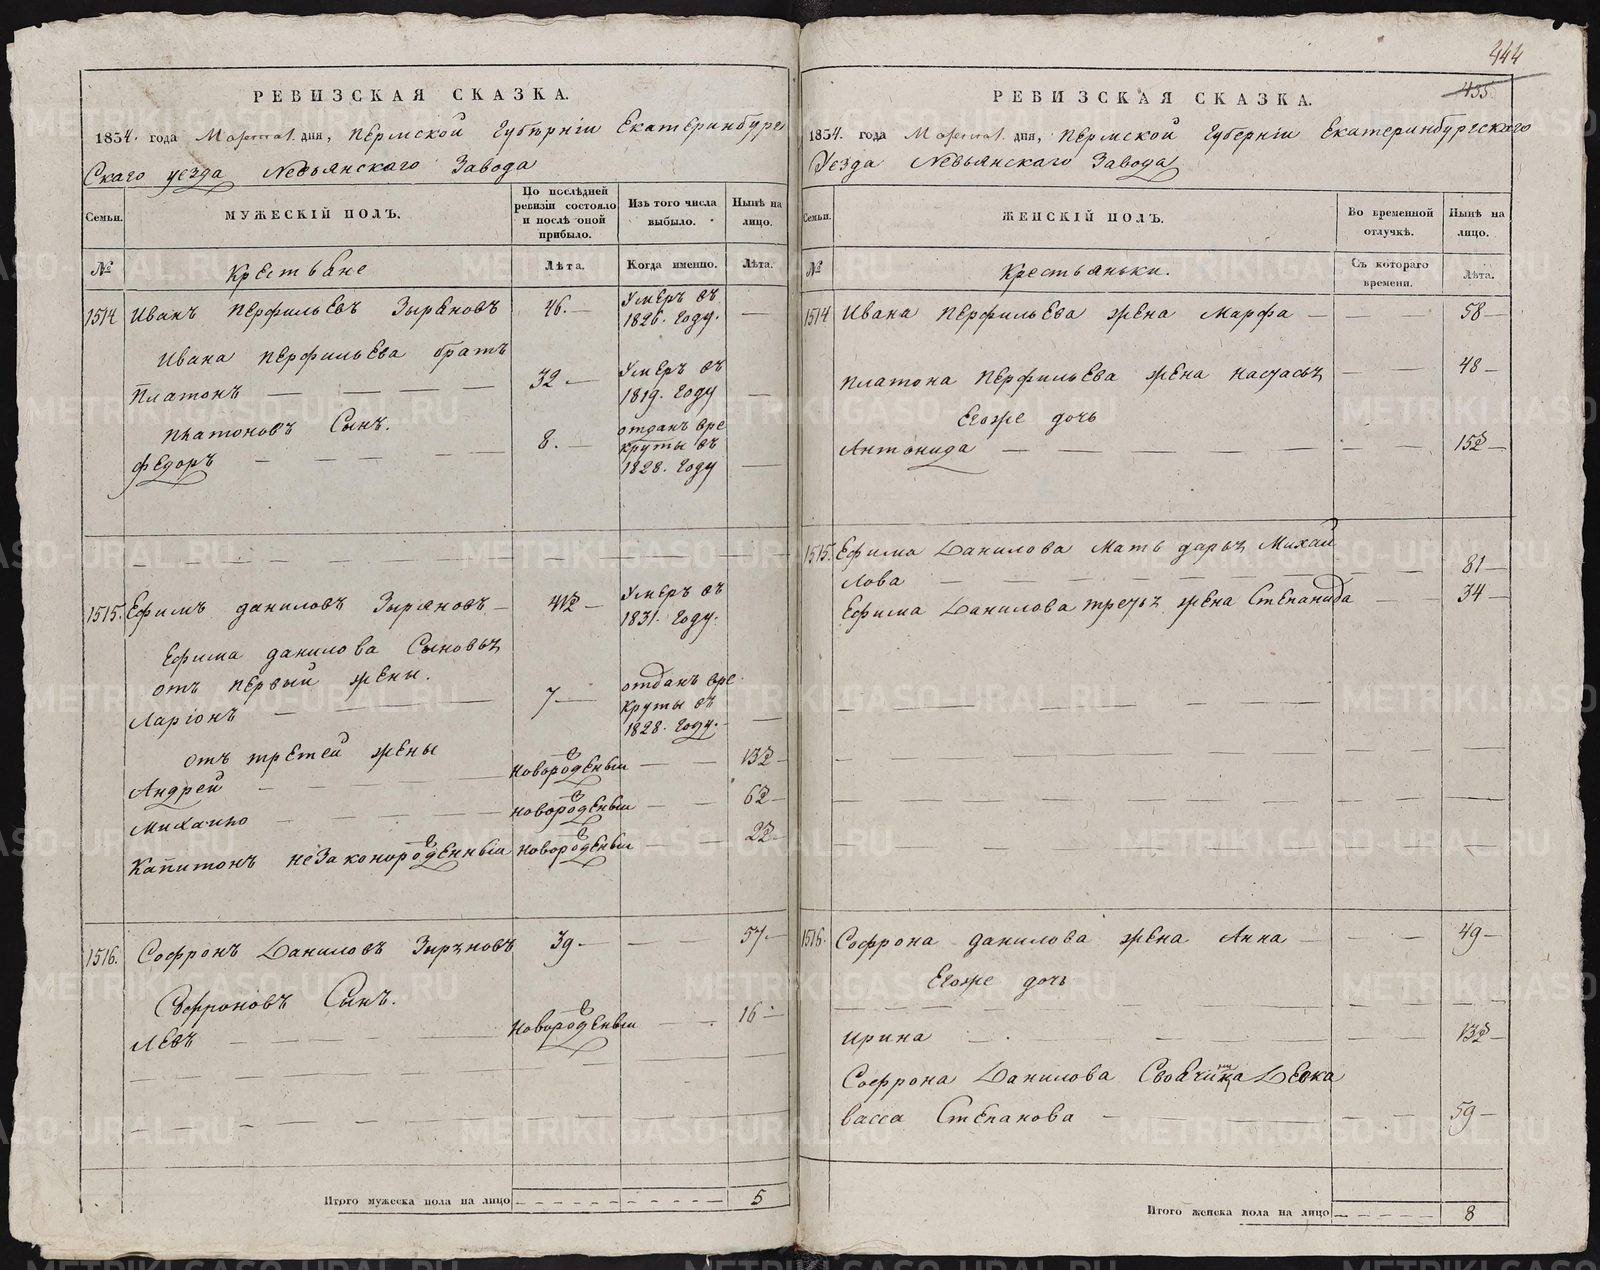 444
455
РЕВИЗСКАЯ СКАЗКА.
1834. года дня, Пермской Губѣрніи Екатеринбург
Скаго уезда Невьянскаго Завода
Семьи.
МУЖЕСКІЙ ПОЛЪ.
По послѣдней ревизіи состояло и послѣ оной прибыло.
Изъ того числа выбыло.
Нынѣ на лицо.
№
Крестьяне
Лѣта.
Когда именно.
Лѣта.
1514 Иванъ Перфильевъ Зыряновъ 46. — Умеръ въ 1826. Году. —
Ивана Перфильева братъ
Платонъ — — — — 32 — Умеръ въ 1819. Году —
Платоновъ Сынъ.
Федоръ — — — — 8. — отданъ вре круты въ 1828. Году —
1515. Ефимъ Даниловъ Зыряновъ — 41½ — Умеръ въ 1831. Году.
Ефима Данилова Сыновья
отъ первый жены.
Ларіонъ — — — 7 — отданъ вре круты въ 1828. Году. —
отъ третей жены
Андрей — — — новорожденый — — 13½ —
Михаило — — — новорожденый — — 6½ —
Капитонъ незаконорожденныи новорожденый — — 2½ —
1516. Софронъ Даниловъ Зыряновъ 39 — — — 57 —
Софроновъ Сынъ.
Левъ — — — — новорожденый — — 16 —
Итого мужеска пола на лицо — — — — 5
РЕВИЗСКАЯ СКАЗКА.
1834. года дня, Пермской Губерніи Екатеринбургскаго
Уезда Невьянскаго Завода
Семьи.
ЖЕНСКІЙ ПОЛЪ.
Во временной отлучкѣ.
Нынѣ на лицо.
№
Крестьяньки.
Съ котораго времени.
Лѣта.
1514 Ивана Перфильева жена Марфа — — — 58 —
Платона Перфильева жена Настасья — — 48 —
Егоже дочь
Антонида — — — — — — 15½ —
1515. Ефима Данилова Мать дарья Михаи
лова — — — — — — 81 —
Ефима Данилова третья жена Степанида — — 34 —
1516. Софрона Данилова жена Анна — — — 49 —
Егоже дочь
Ирина — — — — — — 13½ —
Софрона Данилова Своячиница Девка
васса Степанова — — — — — 59 —
Итого женска пола на лицо — — — — 8
METRIKI.GASO-URAL.RU